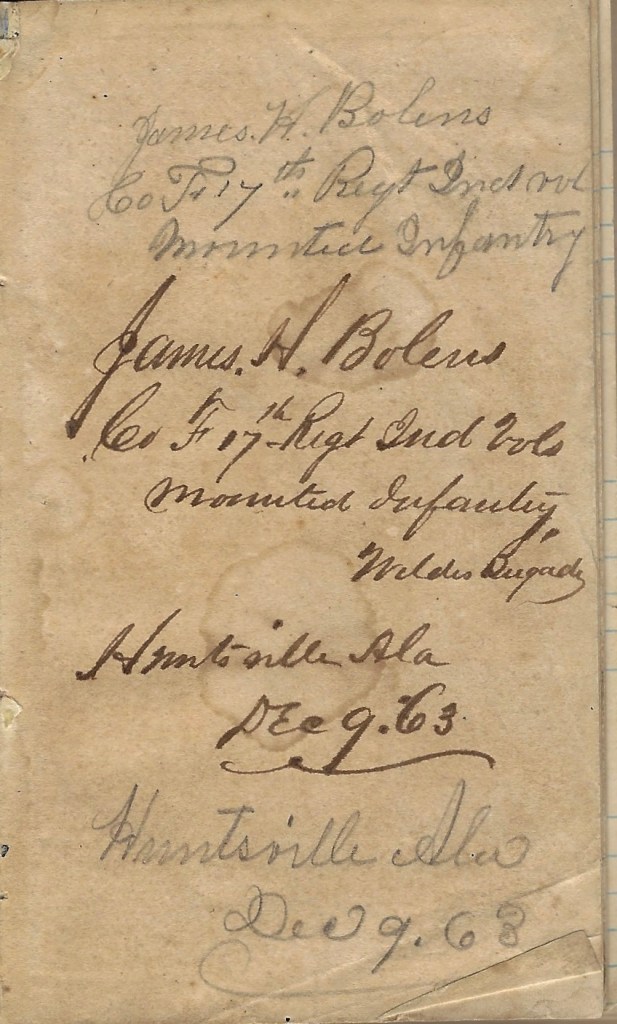 James. H. Bolens
Co F. 17th Regt Ind vol
Mounted Infantry
James. H. Bolens
Co F 17th Regt Ind Vols
Mounted Infantry
Wilders Brigade
Huntsville Ala
DEc 9. 63
Huntsville Ala
Dec 9. 63